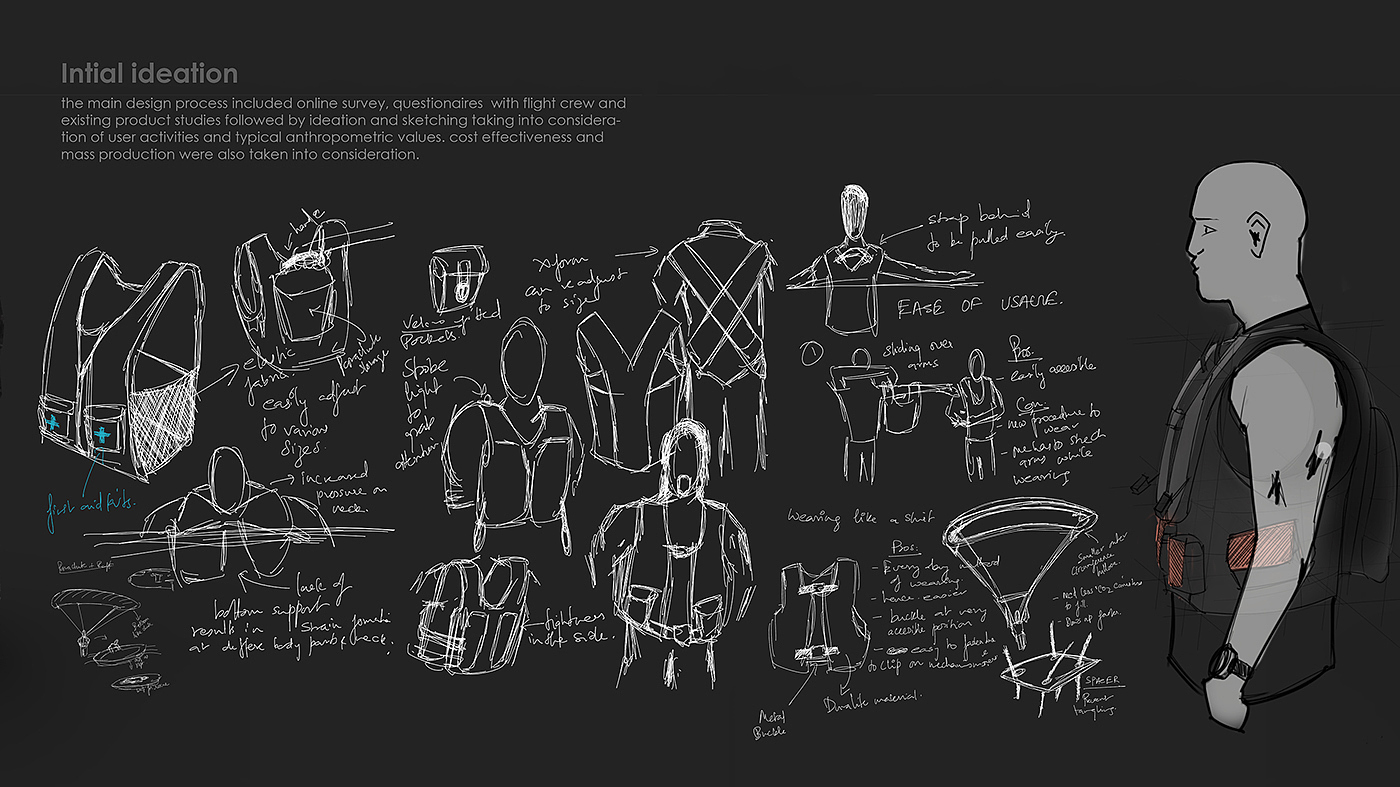 Intial ideation
the main design process included online survey, questionaires with flight crew and
existing product studies followed by ideation and sketching taking into considera-
tion of user activities and typical anthropometric values. cost effectiveness and
mass production were also taken into consideration.
handle
elastic
fabric
easily adjust
to various
sizes.
parachute
storage
first aid kits.
increased
pressure on
neck.
lack of
bottom support
results in strain
at body parts & neck.
pockets.
Strobe
light
to
attention
X-form
can readjust
to size
tightness
in the side.
strap behind
to be pulled easily.
EASE OF USAGE.
1
sliding over
arms
Pros.
- easily accesible
Con.
- new procedure to
wear
- arms while
wearing
Wearing like a shirt
Pros.
- Every day
of wearing.
- hence easier
- buckle at very
accesible position
- easy to
to clip on
Metal
Buckle
Durable material.
Smaller
circumference
to fill.
faster.
SPACER
Prevent
tangling.